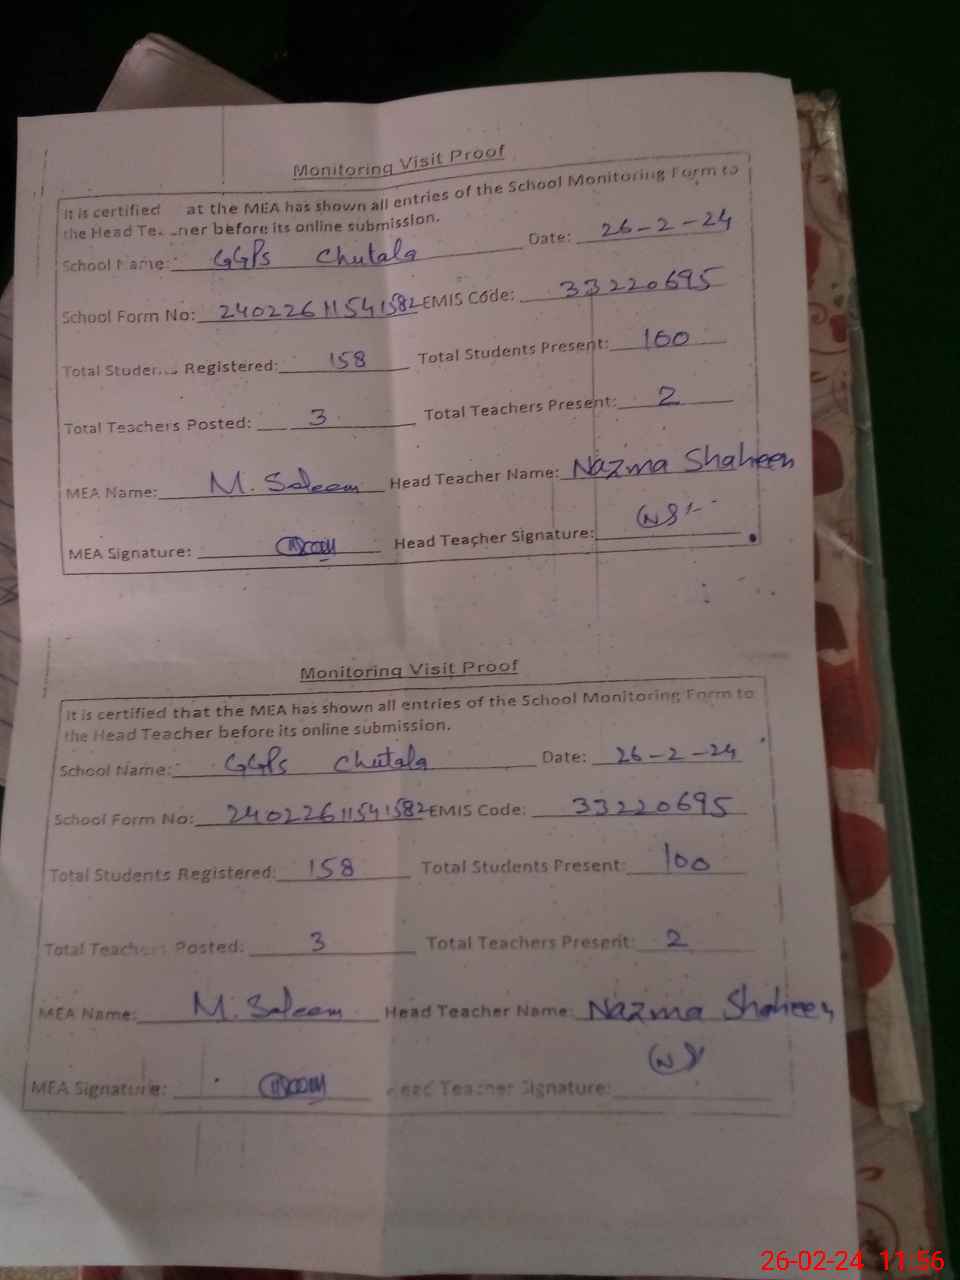 Monitoring Visit Proof
It is certified at the MEA has shown all entries of the School Monitoring Form to
the Head Te...ner before its online submission.
School Name: GGPS Chutala Date: 26-2-24
School Form No: 24022611541582 EMIS Code: 33220695
Total Studen... Registered: 158 Total Students Present: 100
Total Teachers Posted: 3 Total Teachers Present: 2
MEA Name: M. Saleem Head Teacher Name: Nazma Shaheen
MEA Signature: Head Teacher Signature: NS
Monitoring Visit Proof
It is certified that the MEA has shown all entries of the School Monitoring Form to
the Head Teacher before its online submission.
School Name: GGPS Chutala Date: 26-2-24
School Form No: 24022611541582 EMIS Code: 33220695
Total Students Registered: 158 Total Students Present: 100
Total Teachers Posted: 3 Total Teachers Present: 2
MEA Name: M. Saleem Head Teacher Name: Nazma Shaheen
MEA Signature: Head Teacher Signature: NS
26-02-24 11:56